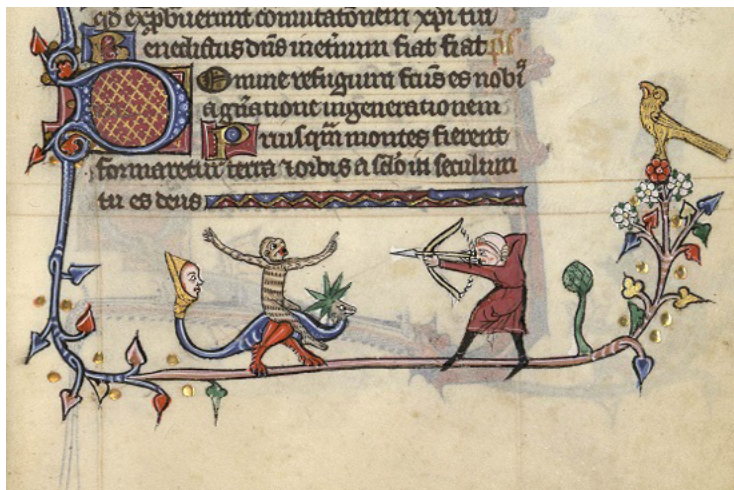 qd exp̱buerunt comutatōnem xp̄i tui
Benedictus dn̄s in et̄num fiat fiat p̄s
Domine refugium fc̄us es nobꝰ
a gn̄atione in generationem
Priusqᷓm montes fierent
formaretur terra ⁊ orbis a sc̄lo in seculum
tu es deus